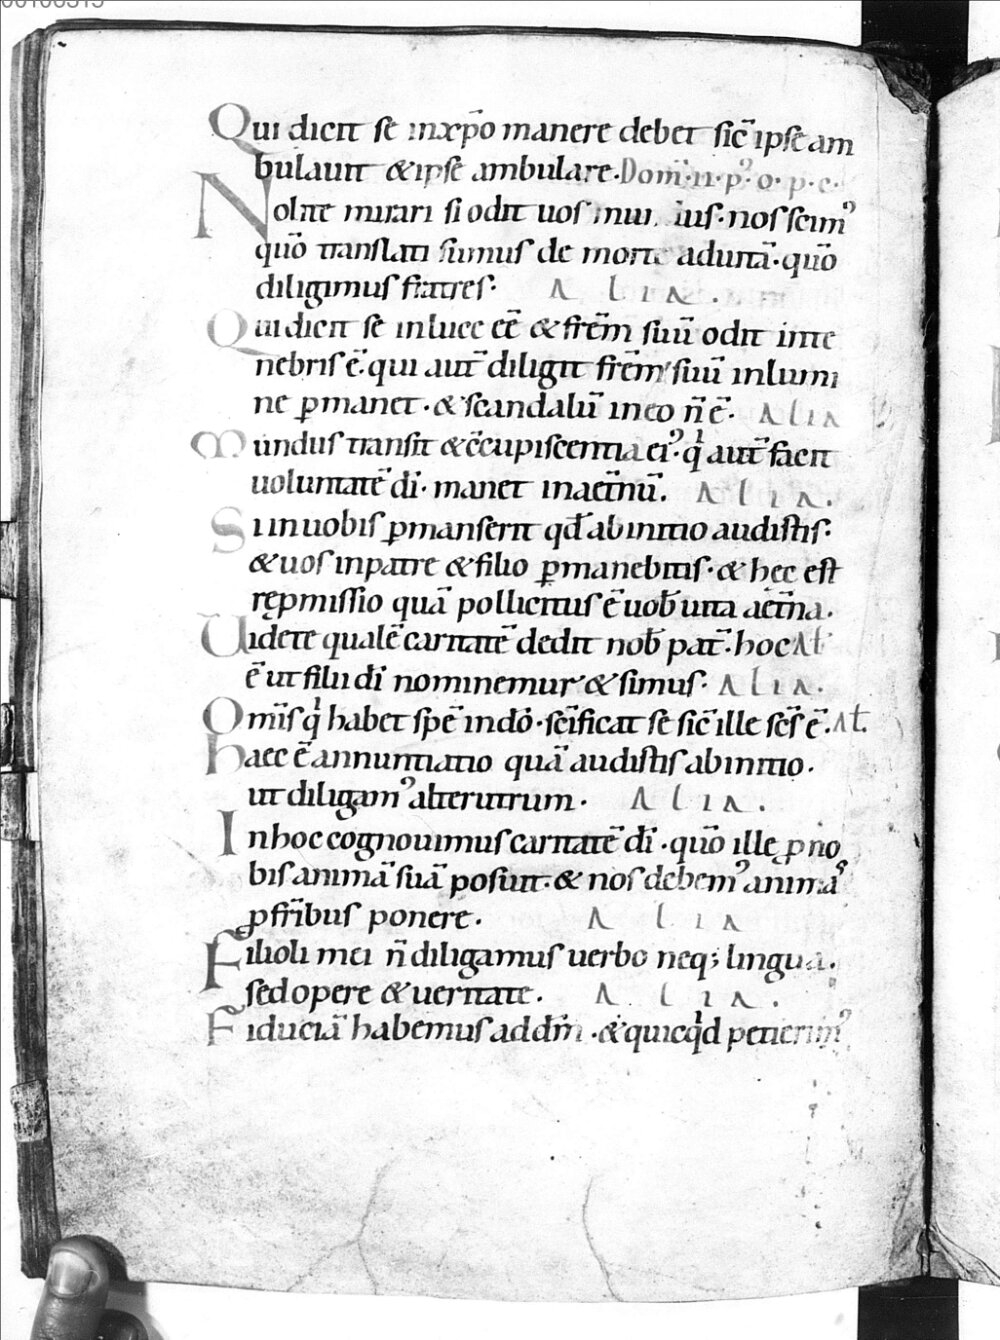 Qui dicit se inxp̄o manere debet sic̄ ipse am
bulauit & ipse ambulare. Dom̄. II. p' o. p. e.
Nolite mirari si odit uos mun ius. nos scim'
quō translati sumus de morte aduitā. quō
diligimus fratres. A L I A.
Qui dicit se inluce eē & frēm suū odit inte
nebris ē. qui aut̄ diligit frēm suū inlumi
ne ꝑmanet. & scandalū ineo n̄ ē. A L I A
Mundus transit & ccupiscentia ei'. q̍ aut̄ facit
uoluntatē dī. manet inaet̄nū. A L I A.
Si inuobis ꝑmanserit qđ abinitio audistis.
& uos inpatre & filio ꝑmanebitis. & hec est
rępmissio quā pollicitus ē uoƀ uita aet̄na.
Uidete qualē caritatē dedit noƀ pat̄. hoc Aƚ
ē ut filii dī nominemur & simus. A L I A.
Om̄is q̍ habet spē indō. sc̄ificat se sic̄ ille sc̄s ē. Aƚ.
haec ē annuntiatio quā audistis abinitio.
ut diligam' alterutrum. A L I A.
Inhoc cognouimus caritatē dī. quō ille ꝓ no
bis animā suā posuit. & nos debem' animas
ꝓ fr̄ibus ponere. A L I A
Filioli mei n̄ diligamus uerbo neq; lingua.
sed opere & ueritate. A L I A.
Fiduciā habemus addm̄. & quicq̍d petierim'